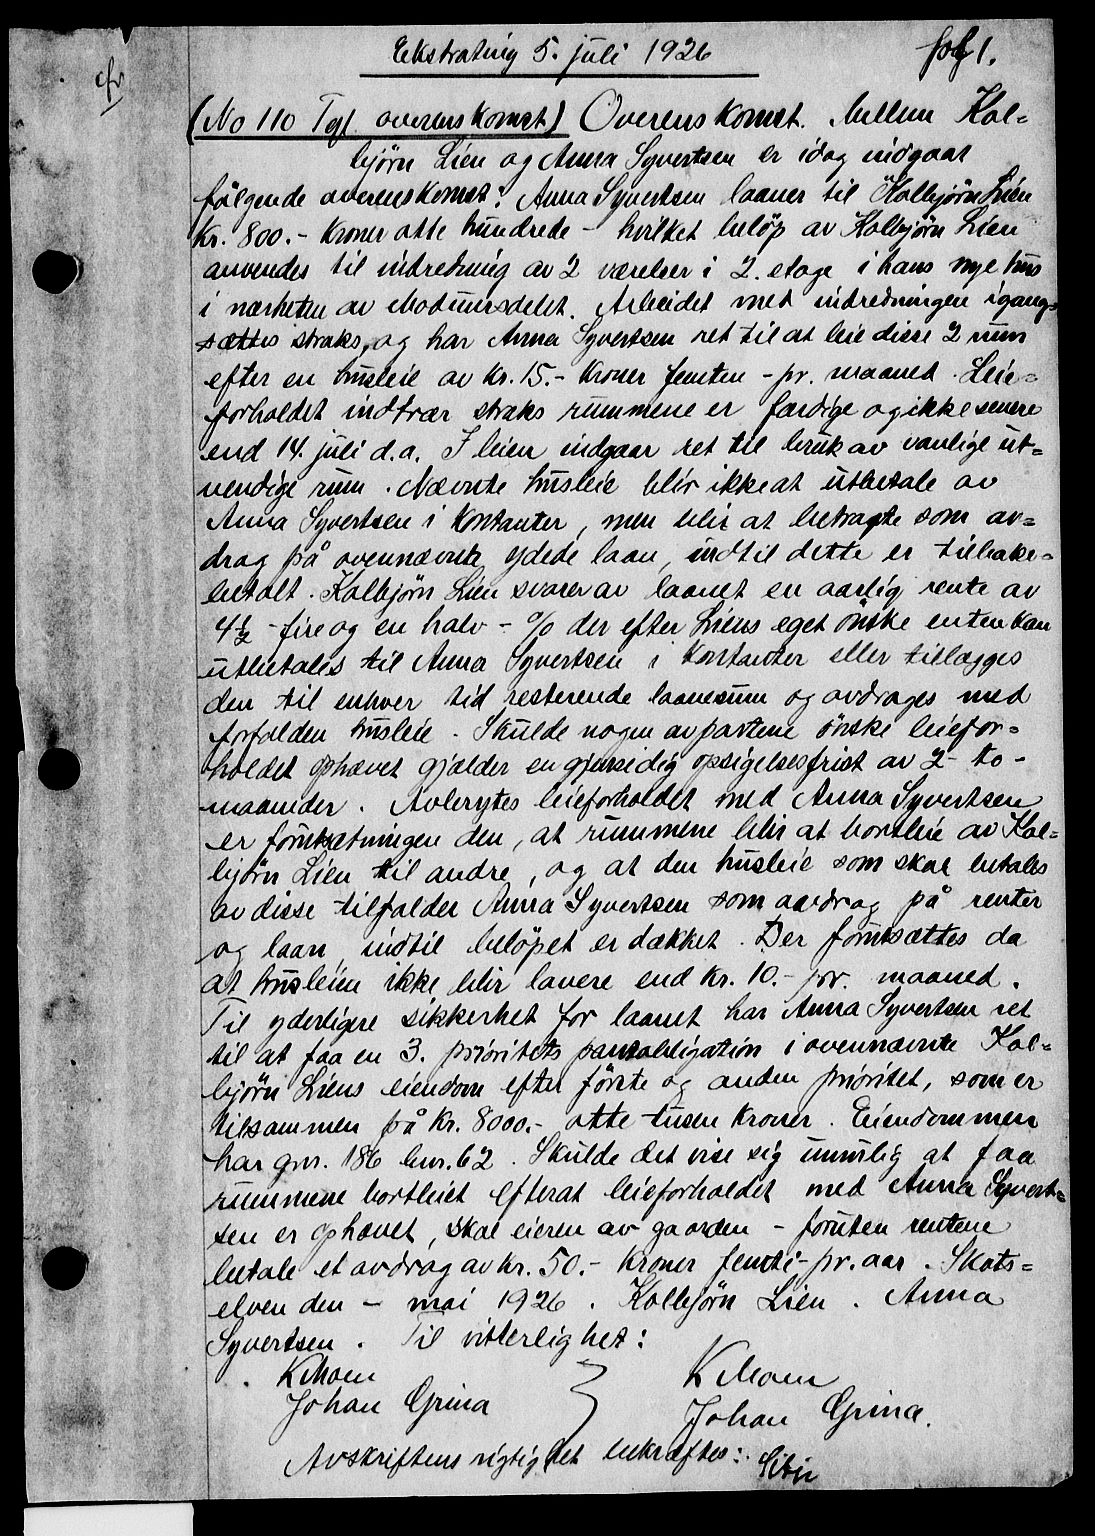 Ekstrating 5. juli 1926
fol 1.
(No 110 Tgl. overenskomst) Overenskomst. Mellem Kol=
bjørn Lien og Anna Syvertsen er idag indgaat
følgende overenskomst: Anna Syvertsen laaner til Kolbjørn Lien
kr. 800.- kroner otte hundrede - hvilket beløp av Kolbjørn Lien
anvendes til indredning av 2 værelser i 2. etage i hans nye hus
i nærheten av Modumsdelet. Arbeidet med indredningen igang=
sættes straks, og har Anna Syvertsen ret til at leie disse 2 rum
efter en husleie av kr. 15.- kroner femten - pr. maaned. Leie=
forholdet indtrær straks rummene er færdige og ikke senere
end 14. juli d.a. I leien indgaar ret til bruk av vanlige ut=
vendige rum. Nævnte husleie blir ikke at utbetale av
Anna Syvertsen i kontanter, men blir at betragte som av=
drag på ovennævnte ydede laan, indtil dette er tilbake=
betalt. Kolbjørn Lien svarer av laanet en aarlig rente av
4½ - fire og en halv - % der efter Liens eget ønske enten kan
utbetales til Anna Syvertsen i kontanter eller tillægges
den til enhver tid resterende laanesum og avdrages med
forfalden husleie. Skulde nogen av partene ønske leiefor=
holdet ophævet gjælder en gjensidig opsigelsesfrist av 2 - to -
maaneder. Avbrytes leieforholdet med Anna Syvertsen
er forutsætningen den, at rummene blir at bortleie av Kol=
bjørn Lien til andre, og at den husleie som skal betales
av disse tilfalder Anna Syvertsen som avdrag på renter
og laan, indtil beløpet er dækket. Der forutsættes da
at husleien ikke blir lavere end kr. 10.- pr. maaned.
Til yderligere sikkerhet for laanet har Anna Syvertsen ret
til at faa en 3. prioritets pantobligation i ovennævnte Kol=
bjørn Liens eiendom efter første og anden prioritet, som er
tilsammen på kr. 8000.- otte tusen kroner. Eiendommen
har gnr. 186 bnr. 62. Skulde det vise sig umulig at faa
rummene bortleiet efterat leieforholdet med Anna Syvert=
sen er ophævet, skal eieren av gaarden - foruten rentene
betale et avdrag av kr. 50.- kroner femti - pr. aar. Skots=
elven den - mai 1926. Kolbjørn Lien. Anna
Syvertsen. Til vitterlighet:
K Moen K Moen
Johan Grina Johan Grina.
Avskriftens rigtighet bekræftes: